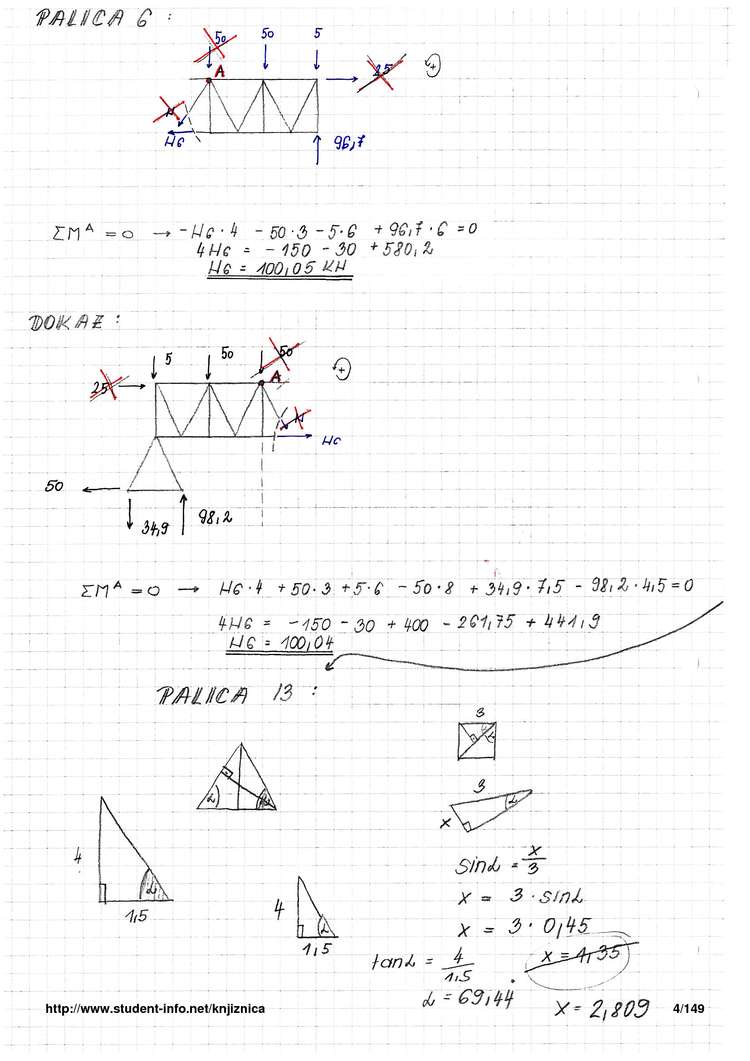 PALICA 6 :
50 50 5
A
25
H6 96,7
ΣMᴬ = 0 → -H6·4 -50·3 -5·6 +96,7·6 = 0
4H6 = -150 -30 +580,2
H6 = 100,05 KH
DOKAZ :
50
5 50
A
25
H6
50
34,9 98,2
ΣMᴬ = 0 → H6·4 +50·3 +5·6 -50·8 +34,9·7,5 -98,2·4,5 = 0
4H6 = -150 -30 +400 -261,75 +441,9
H6 = 100,04
PALICA 13 :
3
L
L L
3
L
x
4
L
1,5
4
L
1,5
sinL = x/3
x = 3·sinL
x = 3·0,45
tanL = 4/1,5
x = 1,35
L = 69,44°
x = 2,809
http://www.student-info.net/knjiznica
4/149